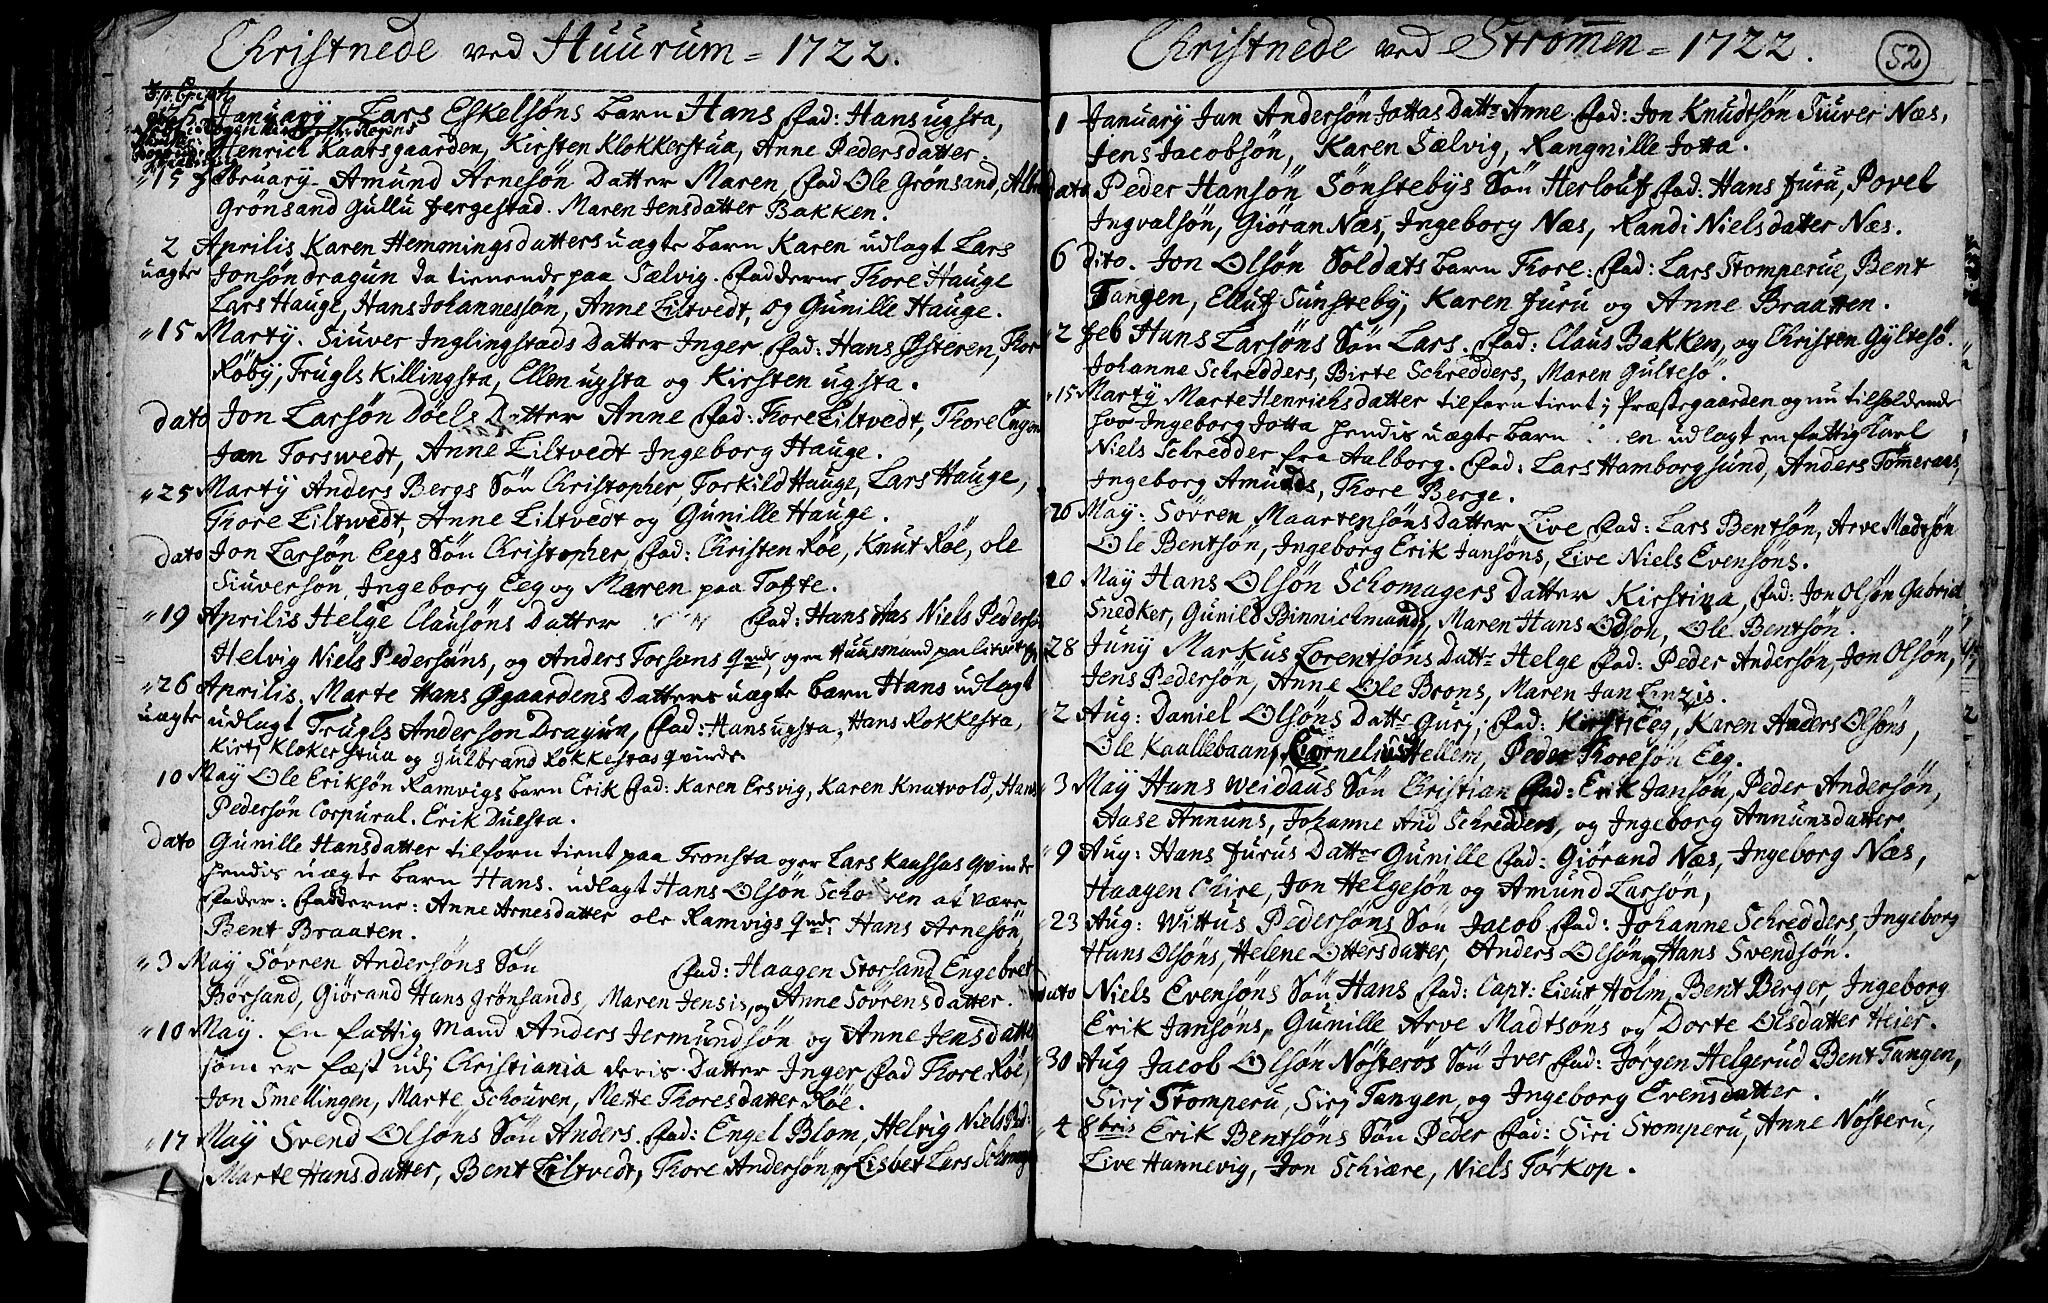 Christnede ved Huurum = 1722.
January Lars Eskelsøns barn Hans Fad: Hans ugsta,
Henrich Kaarsgaarden, Kirsten Klokkerstua, Anne Pedersdatter.
" 15 February. Amund Arnesøn Datter Maren, Fad Ole Grønsand,
Grønsand Gullu Fergestad. Maren Jensdatter Bakken.
2 Aprilis Karen Hemmingsdatters uægte barn Karen udlagt Lars
uægte Jonsøn dragun da tienende paa Sælvig. Fadderne Thore Hauge
Lars Hauge, Hans Johannessøn, Anne Liltvedt, og Gunille Hauge.
" 15 Martÿ. Siuver Inglingstads Datter Inger Fad: Hans Østeren, Thor
Røby, Trugls Killingsta, Ellen ugsta og Kirsten ugsta.
dato Jon Larsøn Døels Datter Anne Fad: Thore Liltvedt, Thore Engen
Jan Torswedt, Anne Liltvedt Ingeborg Hauge.
" 25 Martÿ Anders Bergs Søn Christopher, Torkild Hauge, Lars Hauge,
Thore Liltwedt, Anne Liltvedt og Gunille Hauge.
dato Jon Larsøn Eegs Søn Christopher, Fad: Christen Røe, Knut Røe, ole
Siuversøn, Ingeborg Eeg og Maren paa Tofte.
" 19 Aprilis Helge Clausøns Datter Fad: Hans Aas Niels Peders
Helvig Niels Pedersøns, og Anders Torsøns qvinde og en Huusmand paa
" 26 Aprilis. Marte Hans Øgaardens Datters uægte barn Hans udlagt
uægte udlagt Trugls Anderson Dragun, Fad: Hans ugsta, Hans Rokkesta,
Kirst Klokerstua og Gulbrand Rokkestas qvinde.
10 May Ole Eriksøn Ramvigs barn Erik Fad: Karen Ersvig, Karen Knatvold, Hans
Pedersøn Corpural. Erik Duesta.
dato Gunille Hansdatter tilforn tient paa Tronsta og er Lars Kaassas qvinde
hendis uægte barn Hans. udlagt Hans Olsøn at være
Fader: Fadderne: Anne Arnesdatter ole Ramvigs qvinde Hans Arnesøn
Bent Braaten.
" 3 May Søvren Andersøns Søn Fad: Haagen Storsand Engebret
Børsand, Giørand Hans Grønsands, Maren Jensis, og Anne Søvrensdatter.
" 10 May. En fattig mand Anders Jermundsøn og Anne Jensdatter
som er fæst udj Christiania deris Datter Inger Fad Thore Røe,
Jon Smellingen, Marte Schouren, Mette Thoresdatter Røe.
" 17 May Svend Olsøns Søn Anders. Fad: Engel Blom, Helvig Niels
Marte Hansdatter, Bent Liltvedt, Thore Andersøn, og Lisbet Lars
Christnede ved Strømen = 1722.
52
1 January Jan Andersøn Jottas Datter Anne Fad: Jon Knudtsøn Siuver Næs,
Jens Jacobsøn, Karen Sælvig, Rangnille Jotta.
dato Peder Hansøn Sønstebys Søn Herlouf Fad: Hans Furu, Povel
Ingvalsøn, Giøran Næs, Ingeborg Næs, Randi Nielsdatter Næs.
6 dito. Jon Olsøn Soldats barn Thore: Fad: Lars Stomperue, Bent
Tangen, Elluf Sunsteby, Karen Furu og Anne Braatten.
" 2 Feb Hans Larsøns Søn Lars. Fad: Claus Bakken, og Christen Gyltesø.
Johanne Schredders, Birte Schredders, Maren Gultesø.
" 15 Martÿ Marte Henrichsdatter tilforn tient j Præstegaarden og nu tilholdende
hos Ingeborg Jotta hendis uægte barn en udlagt en fattig Karl
Niels Schredder fra Aalborg. Fad: Lars Hamborgsund, Anders Tømmeraas,
Ingeborg Amunds, Thore Berge.
" 26 May. Søvren Maartensøns Datter Live Fad: Lars Bentsøn, Arve Madtsøn
Ole Bentsøn, Ingeborg Erik Jansøns, Live Niels Evensøns.
10 Maÿ Hans Olsøn Schomagers Datter Kirstina, Fad: Jon Olsøn Gabriel
Snedker, Gunild Binnichmands, Maren Hans Odson, Ole Bentsøn.
28 Juny Markus Lorentsøns Dattr Helge Fad: Peder Andersøn, Jon Olsøn,
Jens Pedersøn, Anne Ole Brons, Maren Jan Linzis.
" 2 Aug: Daniel Olsøns Dattr Gurj; Fad: Kirsti Eeg, Karen Anders Olsøns,
Ole Kaallebaan, Cornelius Hellem, Peder Thoresøn Eeg.
" 3 May Hans Weidaus Søn Christian Fad: Erik Jansøn, Peder Andersøn,
Aase Annuns, Johanne And Schredders, og Ingeborg Annunsdatter.
" 9 Aug: Hans Furus Datter Gunille Fad: Giørand Næs, Ingeborg Næs,
Haagen Chire, Jon Helgesøn og Amund Larsøn,
" 23 Aug: Wittus Pedersøns Søn Jacob Fad: Johanne Schredders, Ingeborg
Hans Olsøns, Helene Ottersdatter, Anders Olsøn, Hans Svendsøn.
dato Niels Evensøns Søn Hans Fad: Capt: Lieut Holm, Bent Berger, Ingeborg
Erik Jansøns, Gunille Arve Madtsøns og Dorte Olsdatter Heier.
30 Aug Jacob Olsøn Nøsterøs Søn Iver Fad: Jørgen Helgerud Bent Tangen,
Sirj Stomperu, Sirj Tangen, og Ingeborg Evensdatter.
" 4 8bris Erik Bentsøns Søn Peder Fad: Siri Stomperu, Anne Nøsteru,
Live Hannevig, Jon Schiære, Niels Torkop.